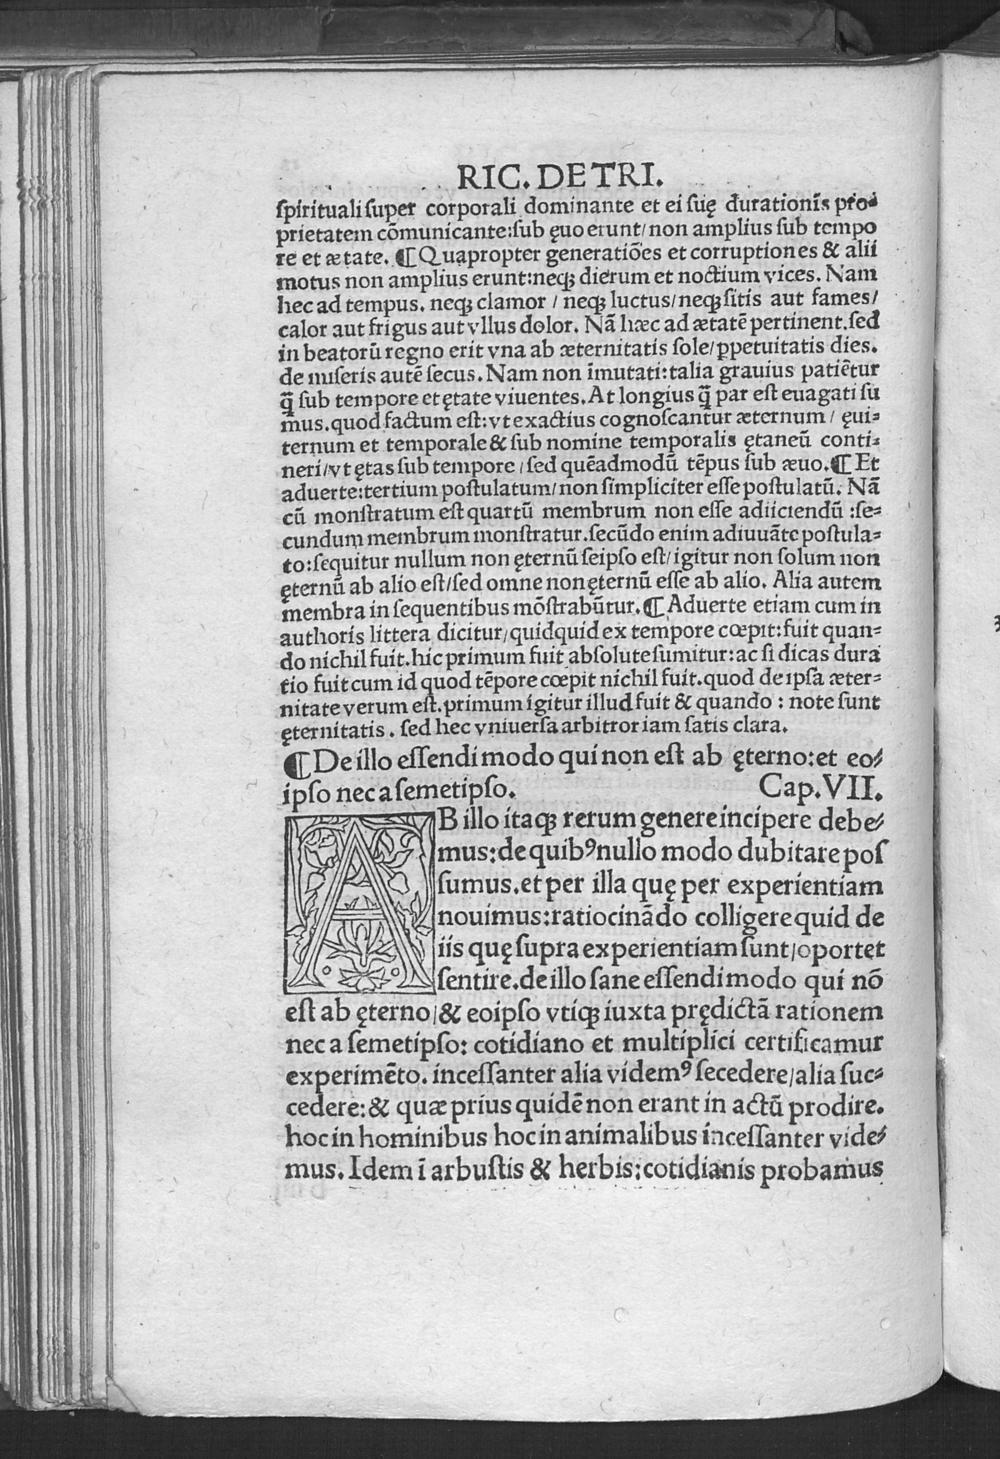 RIC. DE TRI.
ſpirituali ſuper corporali dominante et ei ſuę durationis pro⸗
prietatem cōmunicante:ſub ęuo erunt/ non amplius ſub tempo
re et ætate. ¶ Quapropter generatiões et corruptiones & alii
motus non amplius erunt:neqꝫ dierum et noctium vices. Nam
hec ad tempus. neqꝫ clamor / neqꝫ luctus/neqꝫ ſitis aut fames/
calor aut frigus aut vllus dolor. Nā hæc ad ætatē pertinent.ſed
in beatorū regno erit vna ab æternitatis ſole/ꝑpetuitatis dies.
de miſeris autē ſecus. Nam non īmutati:talia grauius patiētur
q̄̃ ſub tempore et ętate viuentes. At longius q̄̃ par eſt euagati ſu
mus.quod factum eſt:vt exactius cognoſcantur æternum / ęui⸗
ternum et temporale & ſub nomine temporalis ętaneū conti⸗
neri/vt ętas ſub tempore / ſed quēadmodū tēpus ſub æuo.¶ Et
aduerte:tertium poſtulatum/non ſimpliciter eſſe poſtulatū. Nā
cū monſtratum eſt quartū membrum non eſſe adiiciendū :ſe⸗
cundum membrum monſtratur.ſecūdo enim adiuuāte poſtula⸗
to:ſequitur nullum non ęternū ſeipſo eſt/igitur non ſolum non
ęternū ab alio eſt/ſed omne non ęternū eſſe ab alio. Alia autem
membra in ſequentibus mōſtrabūtur.¶ Aduerte etiam cum in
authoris littera dicitur/quidquid ex tempore cœpit:fuit quan⸗
do nichil fuit.hic primum fuit abſolute ſumitur:ac ſi dicas dura
tio fuit cum id quod tēpore cœpit nichil fuit.quod de ipſa æter⸗
nitate verum eſt.primum igitur illud fuit & quando : note ſunt
ęternitatis . ſed hec vniuerſa arbitror iam ſatis clara.
¶ De illo eſſendi modo qui non eſt ab ęterno:et eo⸗
ipſo nec a ſemetipſo. Cap.VII.
AB illo itaqꝫ rerum genere incipere debe⸗
mus:de quibꝰ nullo modo dubitare poſ
ſumus.et per illa quę per experientiam
nouimus:ratiocinādo colligere quid de
iis quę ſupra experientiam ſunt/oportet
ſentire.de illo ſane eſſendi modo qui nō
eſt ab ęterno/& eoipſo vtiqꝫ iuxta prędictā rationem
nec a ſemetipſo: cotidiano et multiplici certificamur
experimēto. inceſſanter alia videmꝰ ſecedere/alia ſuc⸗
cedere:& quæ prius quidē non erant in actū prodire.
hoc in hominibus hoc in animalibus inceſſanter vide⸗
mus. Idem ī arbuſtis & herbis:cotidianis probamus